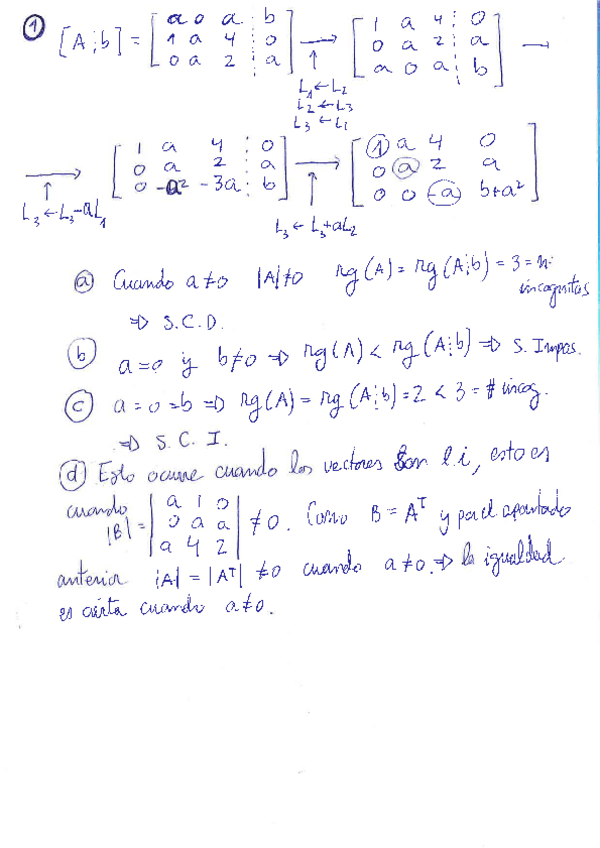 ① [A ⋮ b] = [a 0 a ⋮ b; 1 a 4 ⋮ 0; 0 a 2 ⋮ a] → [1 a 4 ⋮ 0; 0 a 2 ⋮ a; a 0 a ⋮ b] →
L₁ ← L₂
L₂ ← L₃
L₃ ← L₁
→ [1 a 4 ⋮ 0; 0 a 2 ⋮ a; 0 -a² -3a ⋮ b] → [1 a 4 0; 0 a 2 a; 0 0 -a b+a²]
L₃ ← L₃-aL₁
L₃ ← L₃+aL₂
ⓐ Cuando a≠0 |A|≠0 rg(A) = rg(A⋮b) = 3 = nº
incognitas
⇒ S.C.D.
ⓑ a=0 y b≠0 ⇒ rg(A) < rg(A⋮b) ⇒ S. Impos.
ⓒ a=0=b ⇒ rg(A) = rg(A⋮b) = 2 < 3 = # incog.
⇒ S.C.I.
ⓓ Esto ocurre cuando los vectores son l.i, esto es
cuando |B| = |a 1 0; 0 a a; a 4 2| ≠0. Como B = Aᵀ y por el apartado
anterior |A| = |Aᵀ| ≠0 cuando a≠0. ⇒ la igualdad
es cierta cuando a≠0.